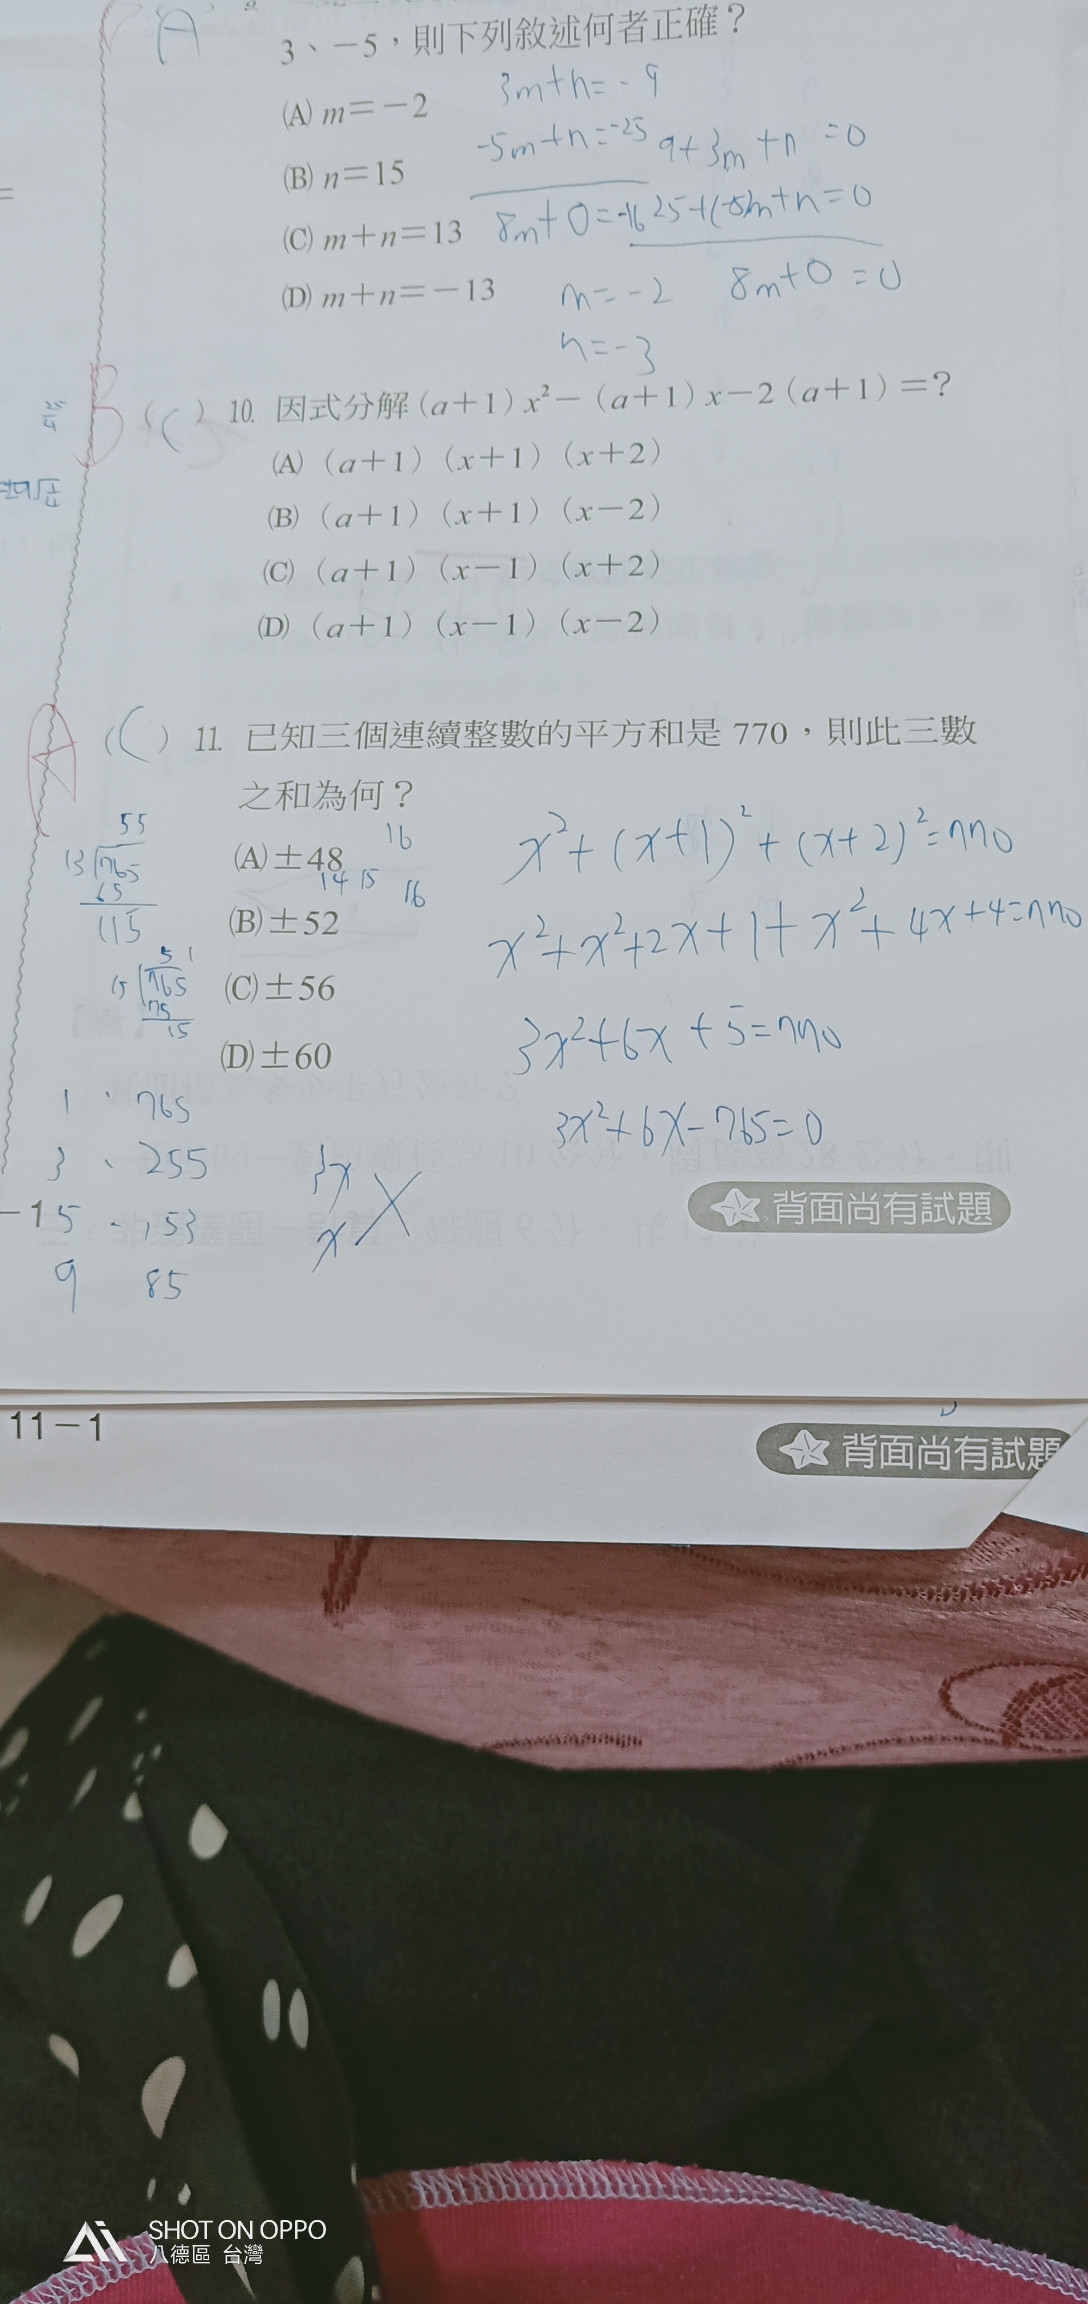 A
3、－5，則下列敘述何者正確？
(A) m＝－2
3m+n=-9
(B) n＝15
-5m+n=-25
9+3m+n=0
(C) m＋n＝13
8m+0=-16
25+(-5)m+n=0
(D) m＋n＝－13
m=-2
8m+0=0
n=-3
B
(C) 10. 因式分解(a＋1)x²－(a＋1)x－2(a＋1)＝？
(A) (a＋1)(x＋1)(x＋2)
(B) (a＋1)(x＋1)(x－2)
(C) (a＋1)(x－1)(x＋2)
(D) (a＋1)(x－1)(x－2)
A
(C) 11. 已知三個連續整數的平方和是 770，則此三數
之和為何？
(A)±48
16
14 15 16
(B)±52
(C)±56
(D)±60
x²+(x+1)²+(x+2)²=770
x²+x²+2x+1+x²+4x+4=770
3x²+6x+5=770
3x²+6x-765=0
55
13 765
65
115
51
15 765
75
15
1、765
3、255
5、153
9 85
3x
x
背面尚有試題
11－1
背面尚有試題
SHOT ON OPPO
八德區 台灣